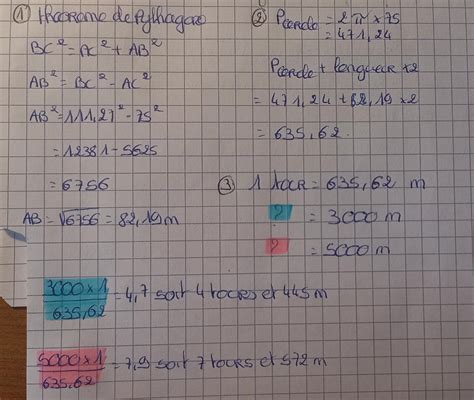 ① Théorème de Pythagore
BC² = AC² + AB²
AB² = BC² - AC²
AB² = 111,27² - 75²
= 12381 - 5625
= 6756
AB = √6756 = 82,19m
② Pcercle = 2π × 75
= 471,24
Pcercle + longueur × 2
= 471,24 + 82,19 × 2
= 635,62
③ 1 tour = 635,62 m
? = 3000 m
? = 5000m
3000 × 1 / 635,62 = 4,7 soit 4 tours et 445 m
5000 × 1 / 635,62 = 7,9 soit 7 tours et 572 m